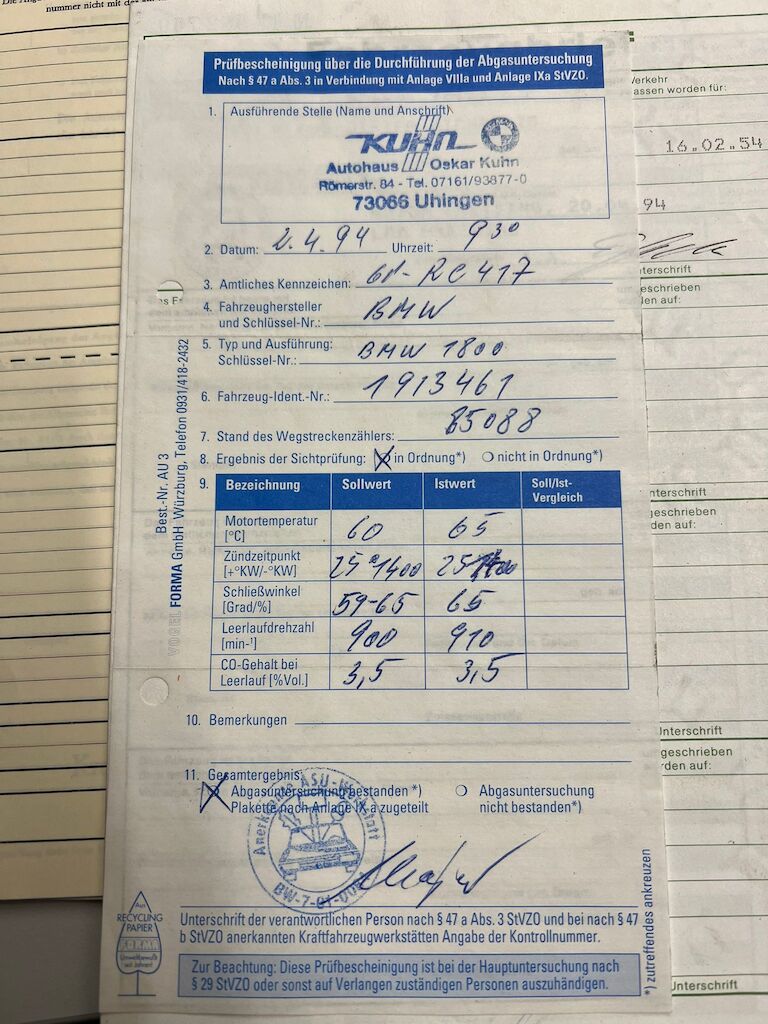 nummer nicht mit der
Prüfbescheinigung über die Durchführung der Abgasuntersuchung
Nach § 47 a Abs. 3 in Verbindung mit Anlage VIIIa und Anlage IXa StVZO.
1. Ausführende Stelle (Name und Anschrift)
KUHN
Autohaus Oskar Kuhn
Römerstr. 84 - Tel. 07161/93877-0
73066 Uhingen
2. Datum: 2.4.94 Uhrzeit: 9 30
3. Amtliches Kennzeichen: RC 417
4. Fahrzeughersteller
und Schlüssel-Nr.: BMW
5. Typ und Ausführung:
Schlüssel-Nr.: BMW 1800
6. Fahrzeug-Ident.-Nr.: 1913461
7. Stand des Wegstreckenzählers: 85088
8. Ergebnis der Sichtprüfung: in Ordnung*) nicht in Ordnung*)
9. Bezeichnung Sollwert Istwert Soll/Ist-
Vergleich
Motortemperatur
[°C] 60 65
Zündzeitpunkt
[+°KW/-°KW] 25°1400 25
Schließwinkel
[Grad/%] 59-65 65
Leerlaufdrehzahl
[min-¹] 900 910
CO-Gehalt bei
Leerlauf [%Vol.] 3,5 3,5
10. Bemerkungen
11. Gesamtergebnis:
Abgasuntersuchung bestanden *) Abgasuntersuchung
Plakette nach Anlage IX a zugeteilt nicht bestanden*)
Anerkannte ASU-Werkstatt
BW-7-01-
Unterschrift der verantwortlichen Person nach § 47 a Abs. 3 StVZO und bei nach § 47
b StVZO anerkannten Kraftfahrzeugwerkstätten Angabe der Kontrollnummer.
Zur Beachtung: Diese Prüfbescheinigung ist bei der Hauptuntersuchung nach
§ 29 StVZO oder sonst auf Verlangen zuständigen Personen auszuhändigen.
*) zutreffendes ankreuzen
Best.-Nr. AU 3
VOGEL FORMA GmbH Würzburg, Telefon 0931/418-2432
Aus
RECYCLING
PAPIER
FORMA
Verkehr
assen worden für:
16.02.54
94
nterschrift
eschrieben
den auf:
nterschrift
geschrieben
den auf:
Unterschrift
geschrieben
rden auf:
Unterschrift